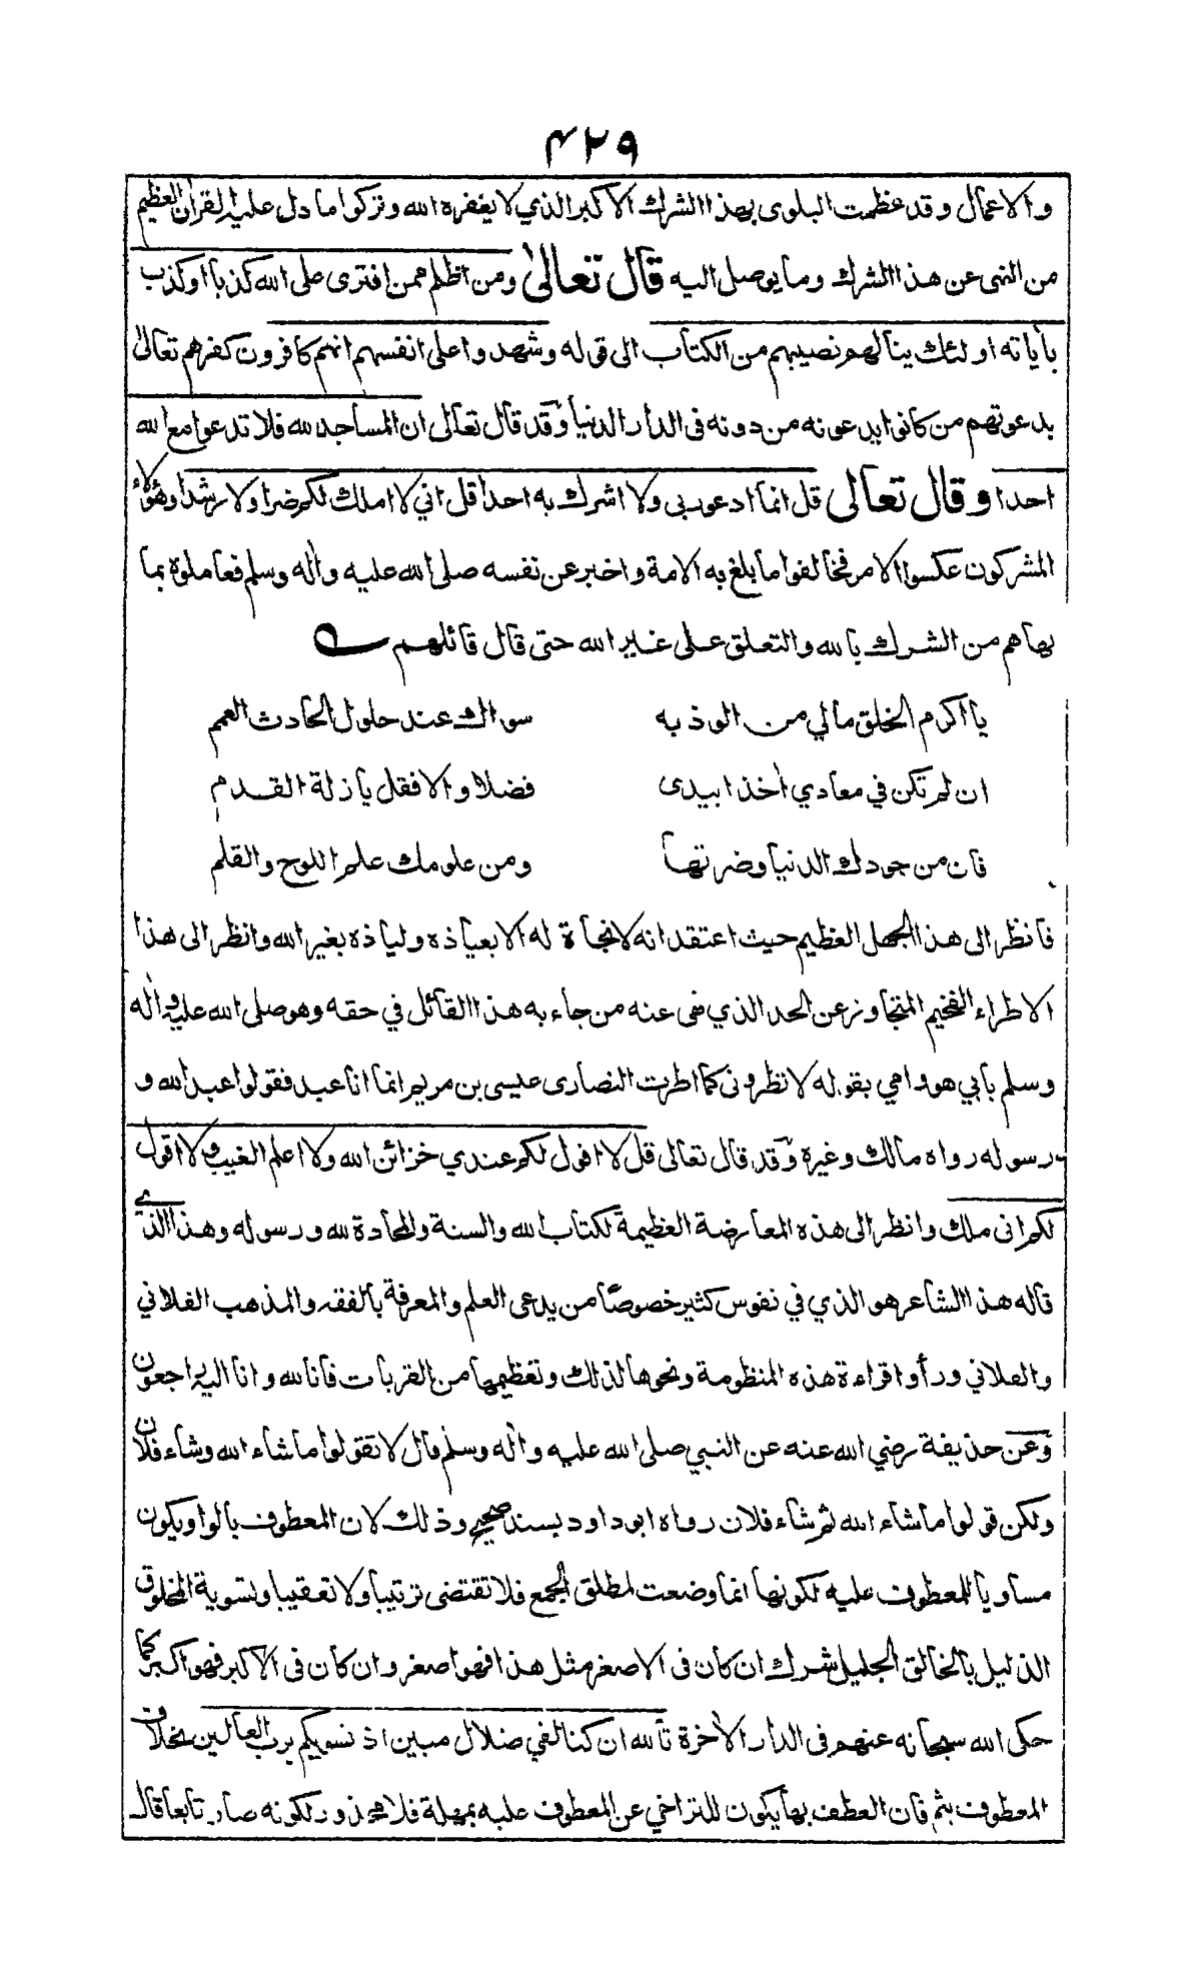 ۴۲۹
والاعمال وقد عظمت البلوى بهذا الشرك الاكبر الذي لا يغفره الله وتركوا ما دل عليه القرآن العظيم
من النهى عن هذا الشرك وما يوصل اليه قال تعالىٰ ومن اظلم ممن افترى على الله كذبا او كذب
بأياته اولئك ينالهم نصيبهم من الكتاب الى قوله وشهدوا على انفسهم انهم كافرون كفرهم تعالىٰ
بدعوتهم من كانوا يدعونه من دونه فى الدار الدنيا وقد قال تعالى ان المساجد لله فلا تدعوا مع الله
احدا وقال تعالى قل انما ادعو ربى ولا اشرك به احدا قل اني لا املك لكم ضرا ولا رشدا وهؤلاء
المشركون عكسوا الامر فخالفوا ما بلغ به الامة واخبر عن نفسه صلى الله عليه وأله وسلم فعاملوه بما
نهاهم من الشرك بالله والتعلق على غير الله حتى قال قائلهم
يا اكرم الخلق مالي من الوذ به سواك عند حلول الحادث العمم
ان لم تكن في معادي أخذا بيدى فضلا والا فقل يا زلة القدم
فان من جودك الدنيا وضرتها ومن علومك علم اللوح والقلم
فانظر الى هذا الجهل العظيم حيث اعتقد انه لا نجاة له الا بعياذه ولياذه بغير الله وانظر الى هذا
الاطراء الفخيم المتجاوز عن الحد الذي نهى عنه من جاء به هذا القائل في حقه وهو صلى الله عليه وأله
وسلم بأبي هو وامي بقوله لا تطرونى كما اطرت النصارى عيسى بن مريم انما انا عبد فقولوا عبد الله و
رسوله رواه مالك وغيره وقد قال تعالى قل لا اقول لكم عندي خزائن الله ولا اعلم الغيب ولا اقول
لكم انى ملك وانظر الى هذه المعارضة العظيمة لكتاب الله والسنة والمحادة لله ورسوله وهذا الذي
قاله هذا الشاعر هو الذي في نفوس كثير خصوصًا من يدعى العلم والمعرفة بالفقه والمذهب الفلاني
والعلاني ورأوا قراءة هذه المنظومة ونحوها لذلك وتعظيمها من القربات فانا لله وانا اليه راجعون
وعن حذيفة رضي الله عنه عن النبي صلى الله عليه وأله وسلم قال لا تقولوا ما شاء الله وشاء فلان
ولكن قولوا ما شاء الله ثم شاء فلان رواه ابو داود بسند صحيح وذلك لان المعطوف بالواو يكون
مساويا للمعطوف عليه لكونها انما وضعت لمطلق الجمع فلا تقتضى ترتيبا ولا تعقيبا وتسوية المخلوق
الذليل بالخالق الجليل شرك ان كان فى الاصغر مثل هذا فهو اصغر وان كان فى الاكبر فهو اكبر كما
حكى الله سبحانه عنهم فى الدار الأخرة تالله ان كنا لفي ضلال مبين اذ نسويكم برب العالمين بخلاف
المعطوف بثم فان العطف بها يكون للتراخي عن المعطوف عليه بمهلة فلا محذور لكونه صار تابعا قال